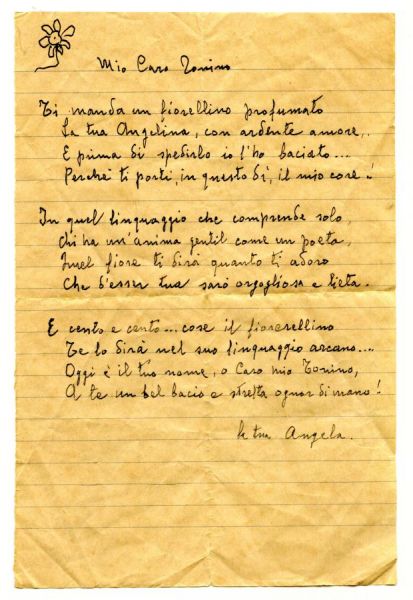 Mio Caro Tonino
Ti manda un fiorellino profumato
La tua Angelina, con ardente amore,.
E prima di spedirlo io l'ho baciato...
Perché ti porti, in questo dì, il mio core!
In quel linguaggio che comprende solo,
Chi ha un'anima gentil come un poeta,
Quel fiore ti dirà quanto ti adoro
Che d'esser tua sarò orgogliosa e lieta.
E cento e cento... cose il fiorerellino
Te lo dirà nel suo linguaggio arcano....
Oggi è il tuo nome, o Caro mio Tonino,
A te un bel bacio e stretta ognor di mano!
la tua Angela.